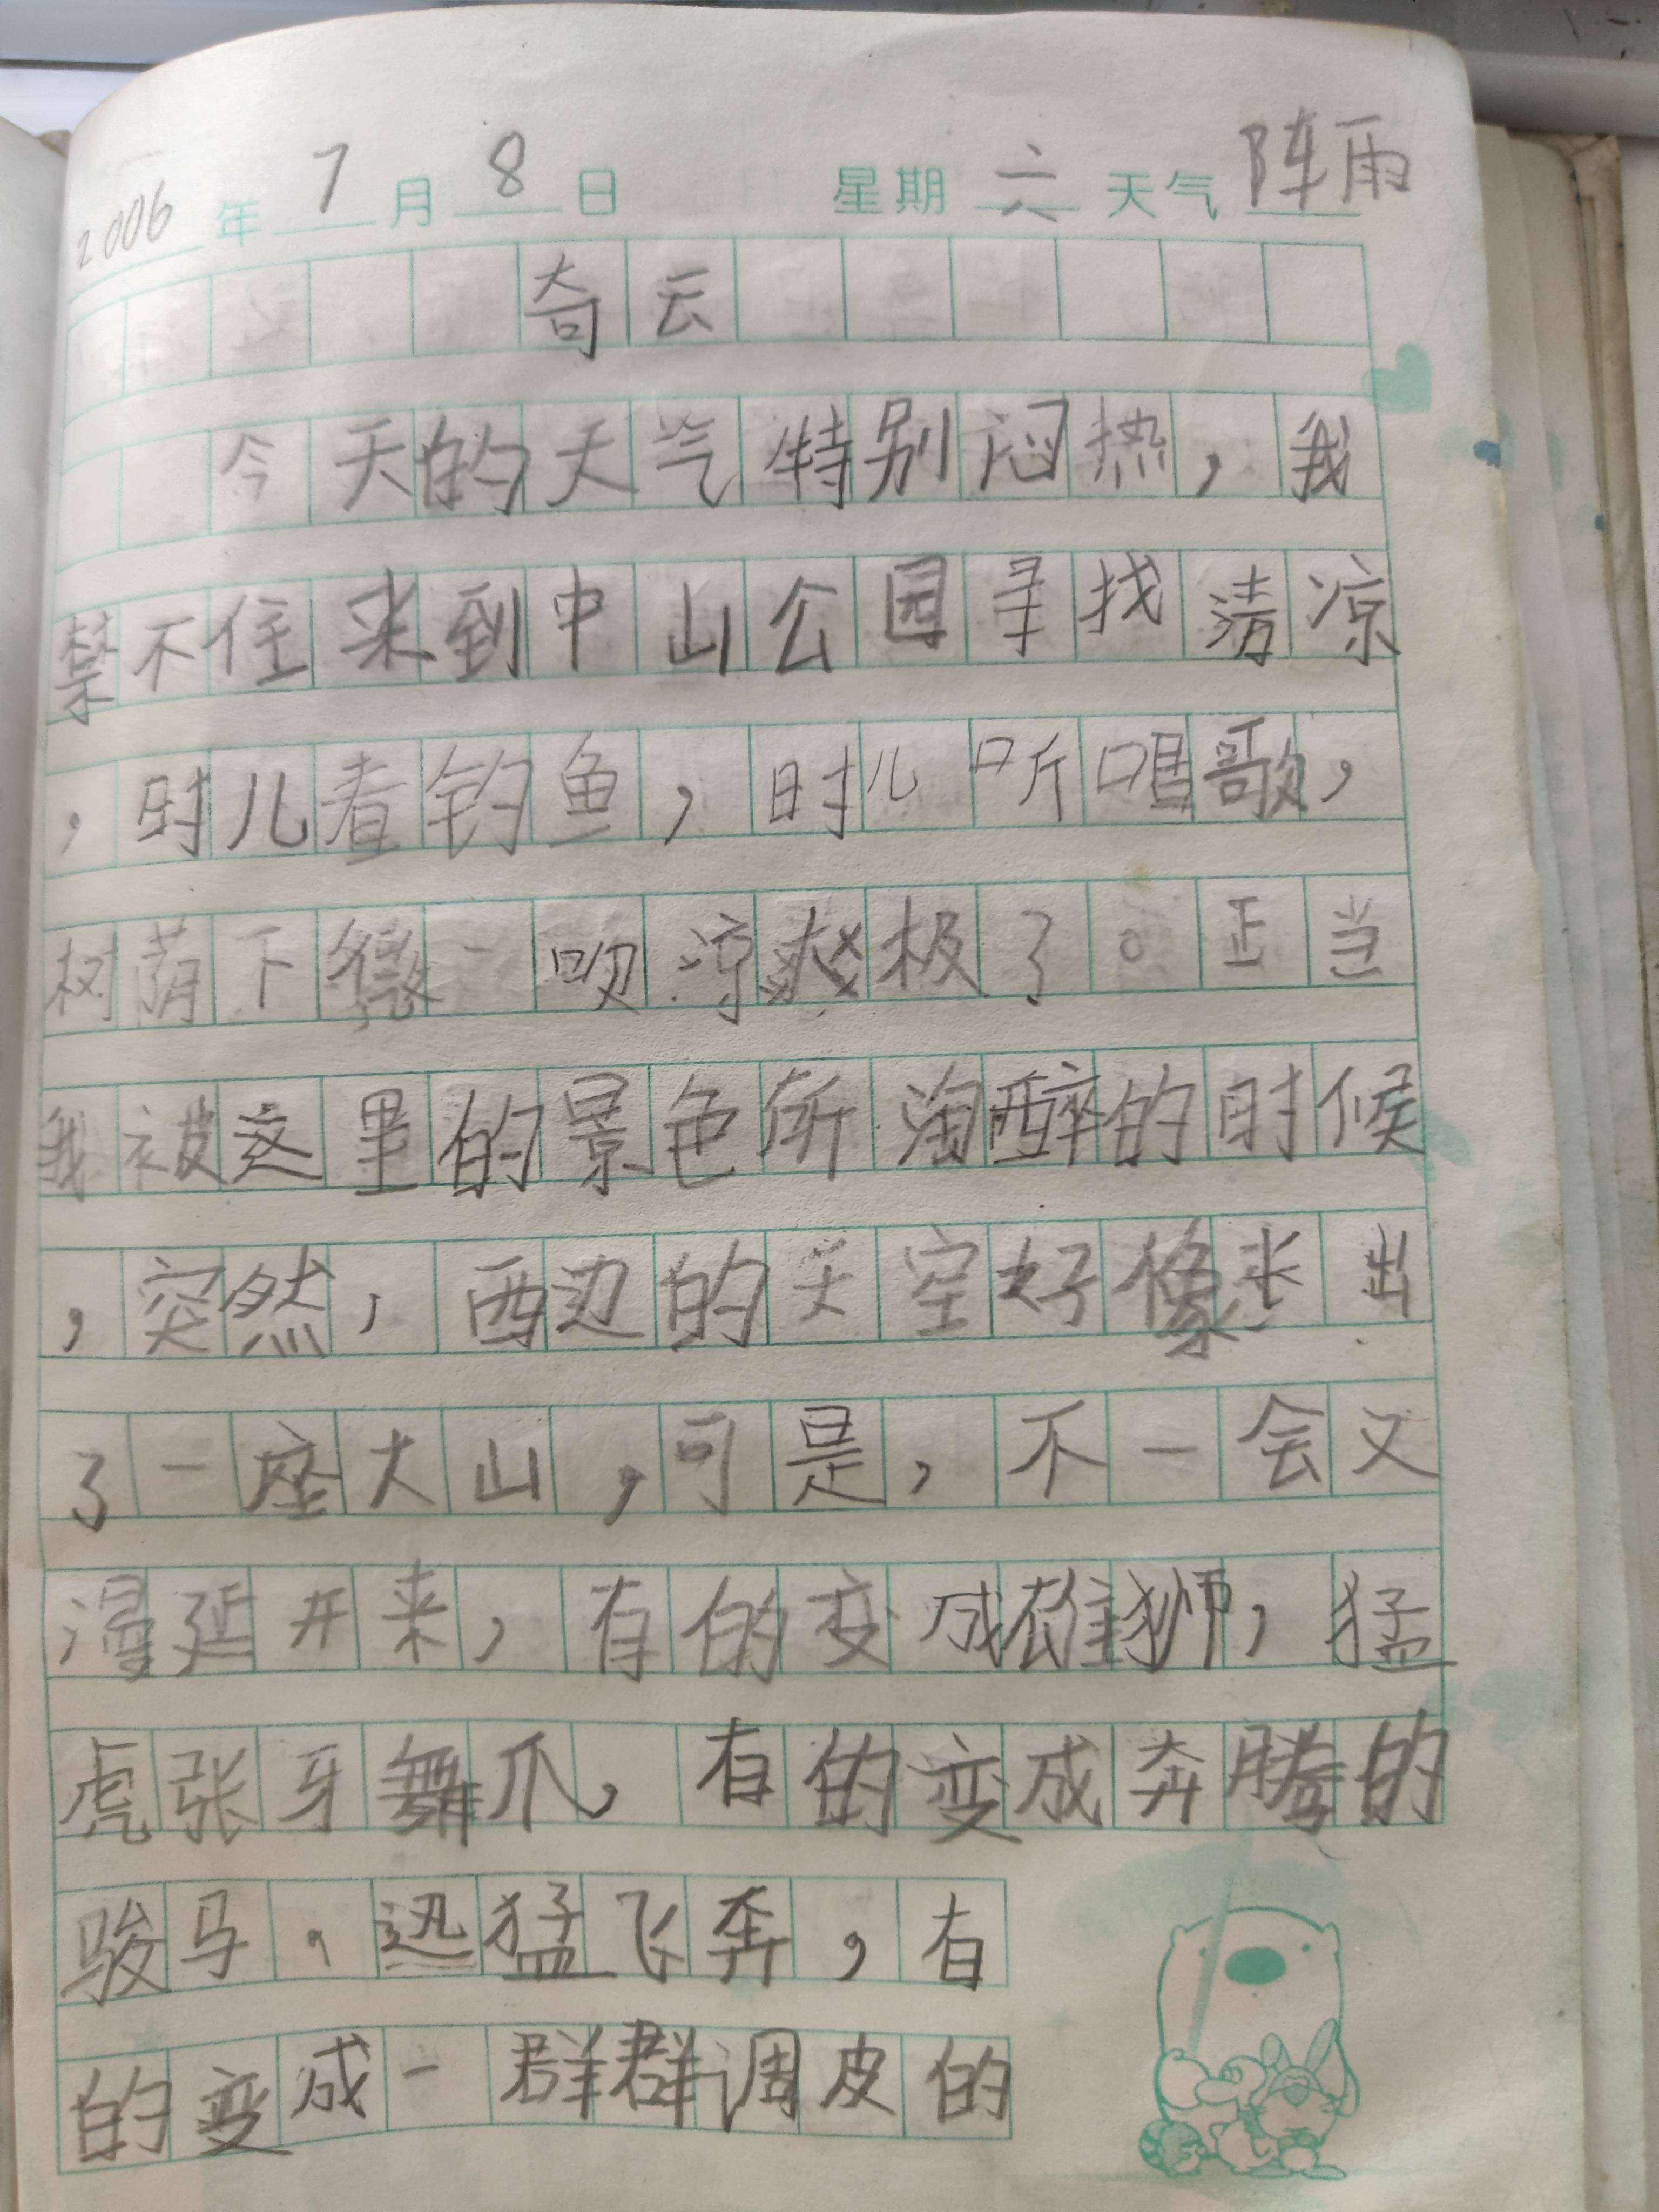 2006年7月8日 星期六 天气 阵雨
奇云
今天的天气特别闷热，我
禁不住来到中山公园寻找清凉
，时儿看钓鱼，时儿听唱歌，
树荫下微一吹凉爽极了。正当
我被这里的景色所淘醉的时候
，突然，西边的天空好像长出
了一座大山，可是，不一会又
漫延开来，有的变成雄狮，猛
虎张牙舞爪，有的变成奔腾的
骏马，迅猛飞奔，有
的变成一群群调皮的